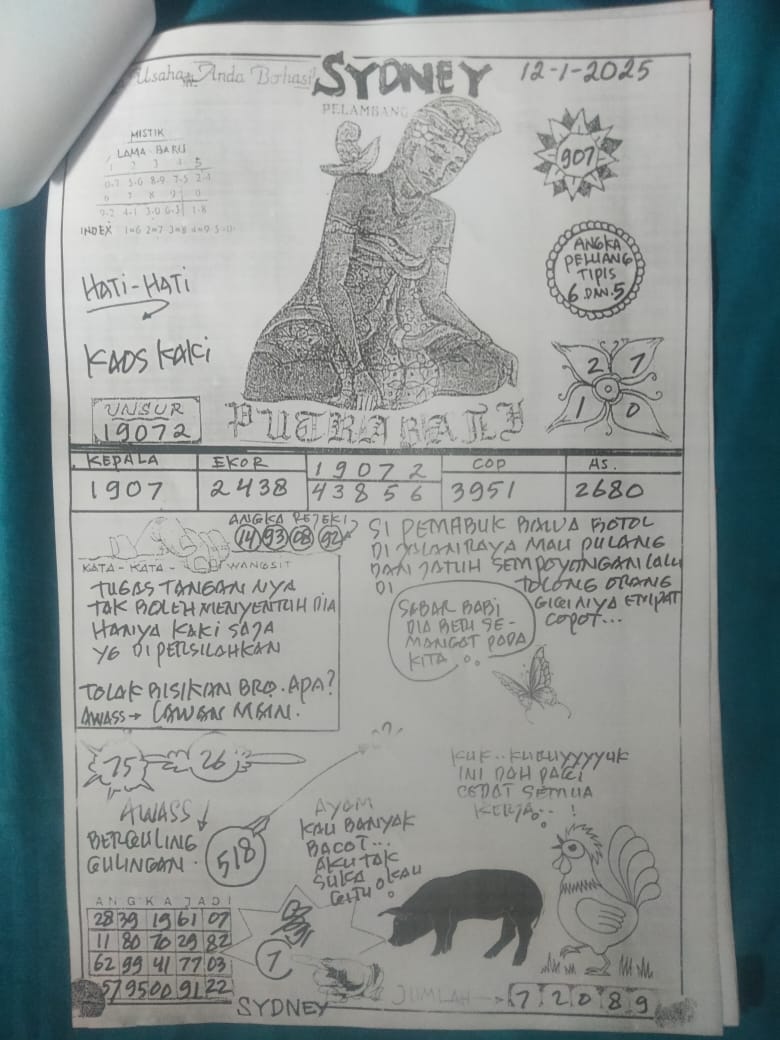 Usaha Anda Berhasil
SYDNEY
12-1-2025
PELAMBANG
MISTIK
LAMA - BARU
1 2 3 4 5
0-7 5-6 8-9 7-5 2-4
6 7 8 9 0
9-2 4-1 3-0 6-5 1-8
INDEX 1=6 2=7 3=8 4=9 5=0
907
ANGKA
PELUANG
TIPIS
6 DAN 5
HATI-HATI
KAOS KAKI
2 7
1 0
UNSUR
19072
PUTRA BALI
KEPALA EKOR 19072 COP AS.
1907 2438 43856 3951 2680
ANGKA REJEKI
14 93 08 92
KATA - KATA - WANGSIT
TUGAS TANGAN NYA
TAK BOLEH MENYENTUH DIA
HANYA KAKI SAJA
YG DI PERSILAHKAN
TOLAK BISIKAN BRO. APA?
AWASS → LAWAN MAIN.
SI PEMABUK BAWA BOTOL
DI JALAN RAYA MAU PULANG
DAN JATUH SEMPOYONGAN LALU
DI TOLONG ORANG
GIGI NYA EMPAT
COPOT...
SABAR BABI
DIA BERI SE-
MANGAT PADA
KITA
75 26
??
AWASS
BERGULING
GULINGAN
518
AYAM
KAU BANYAK
BACOT...
AKU TAK
SUKA
GITU OKAU
KUK..KURUYYYYUK
INI DAH PAGI
CEPAT SEMUA
KERJA...!
ANGKA JADI
28 39 19 61 07
11 80 70 29 82
62 99 41 77 03
57 95 00 91 22
7
SYDNEY
JUMLAH 7 2 0 8 9